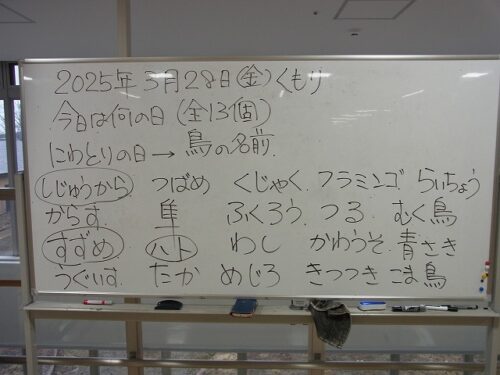 2025年3月28日(金)くもり
今日は何の日(全13個)
にわとりの日→鳥の名前
しじゅうから つばめ くじゃく フラミンゴ らいちょう
がらす 隼 ふくろう つる むく鳥
すずめ ハト わし かわうそ 青さぎ
うぐいす たか めじろ きつつき こま鳥